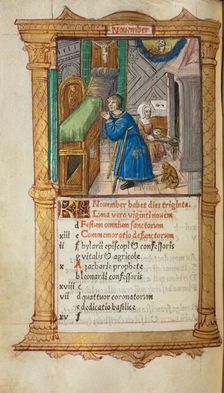 November
November habet dies triginta.
Luna vero viginti novem
d Festum omnium sanctorum
xiii e Commemoratio defunctorum
ii f hylarii episcopi & confessoris
g vitalis & agricole
x A zacharie prophete
b leonardi confessoris
xviii c
vii d quattuor coronatorum
e dedicatio basilice
xv f